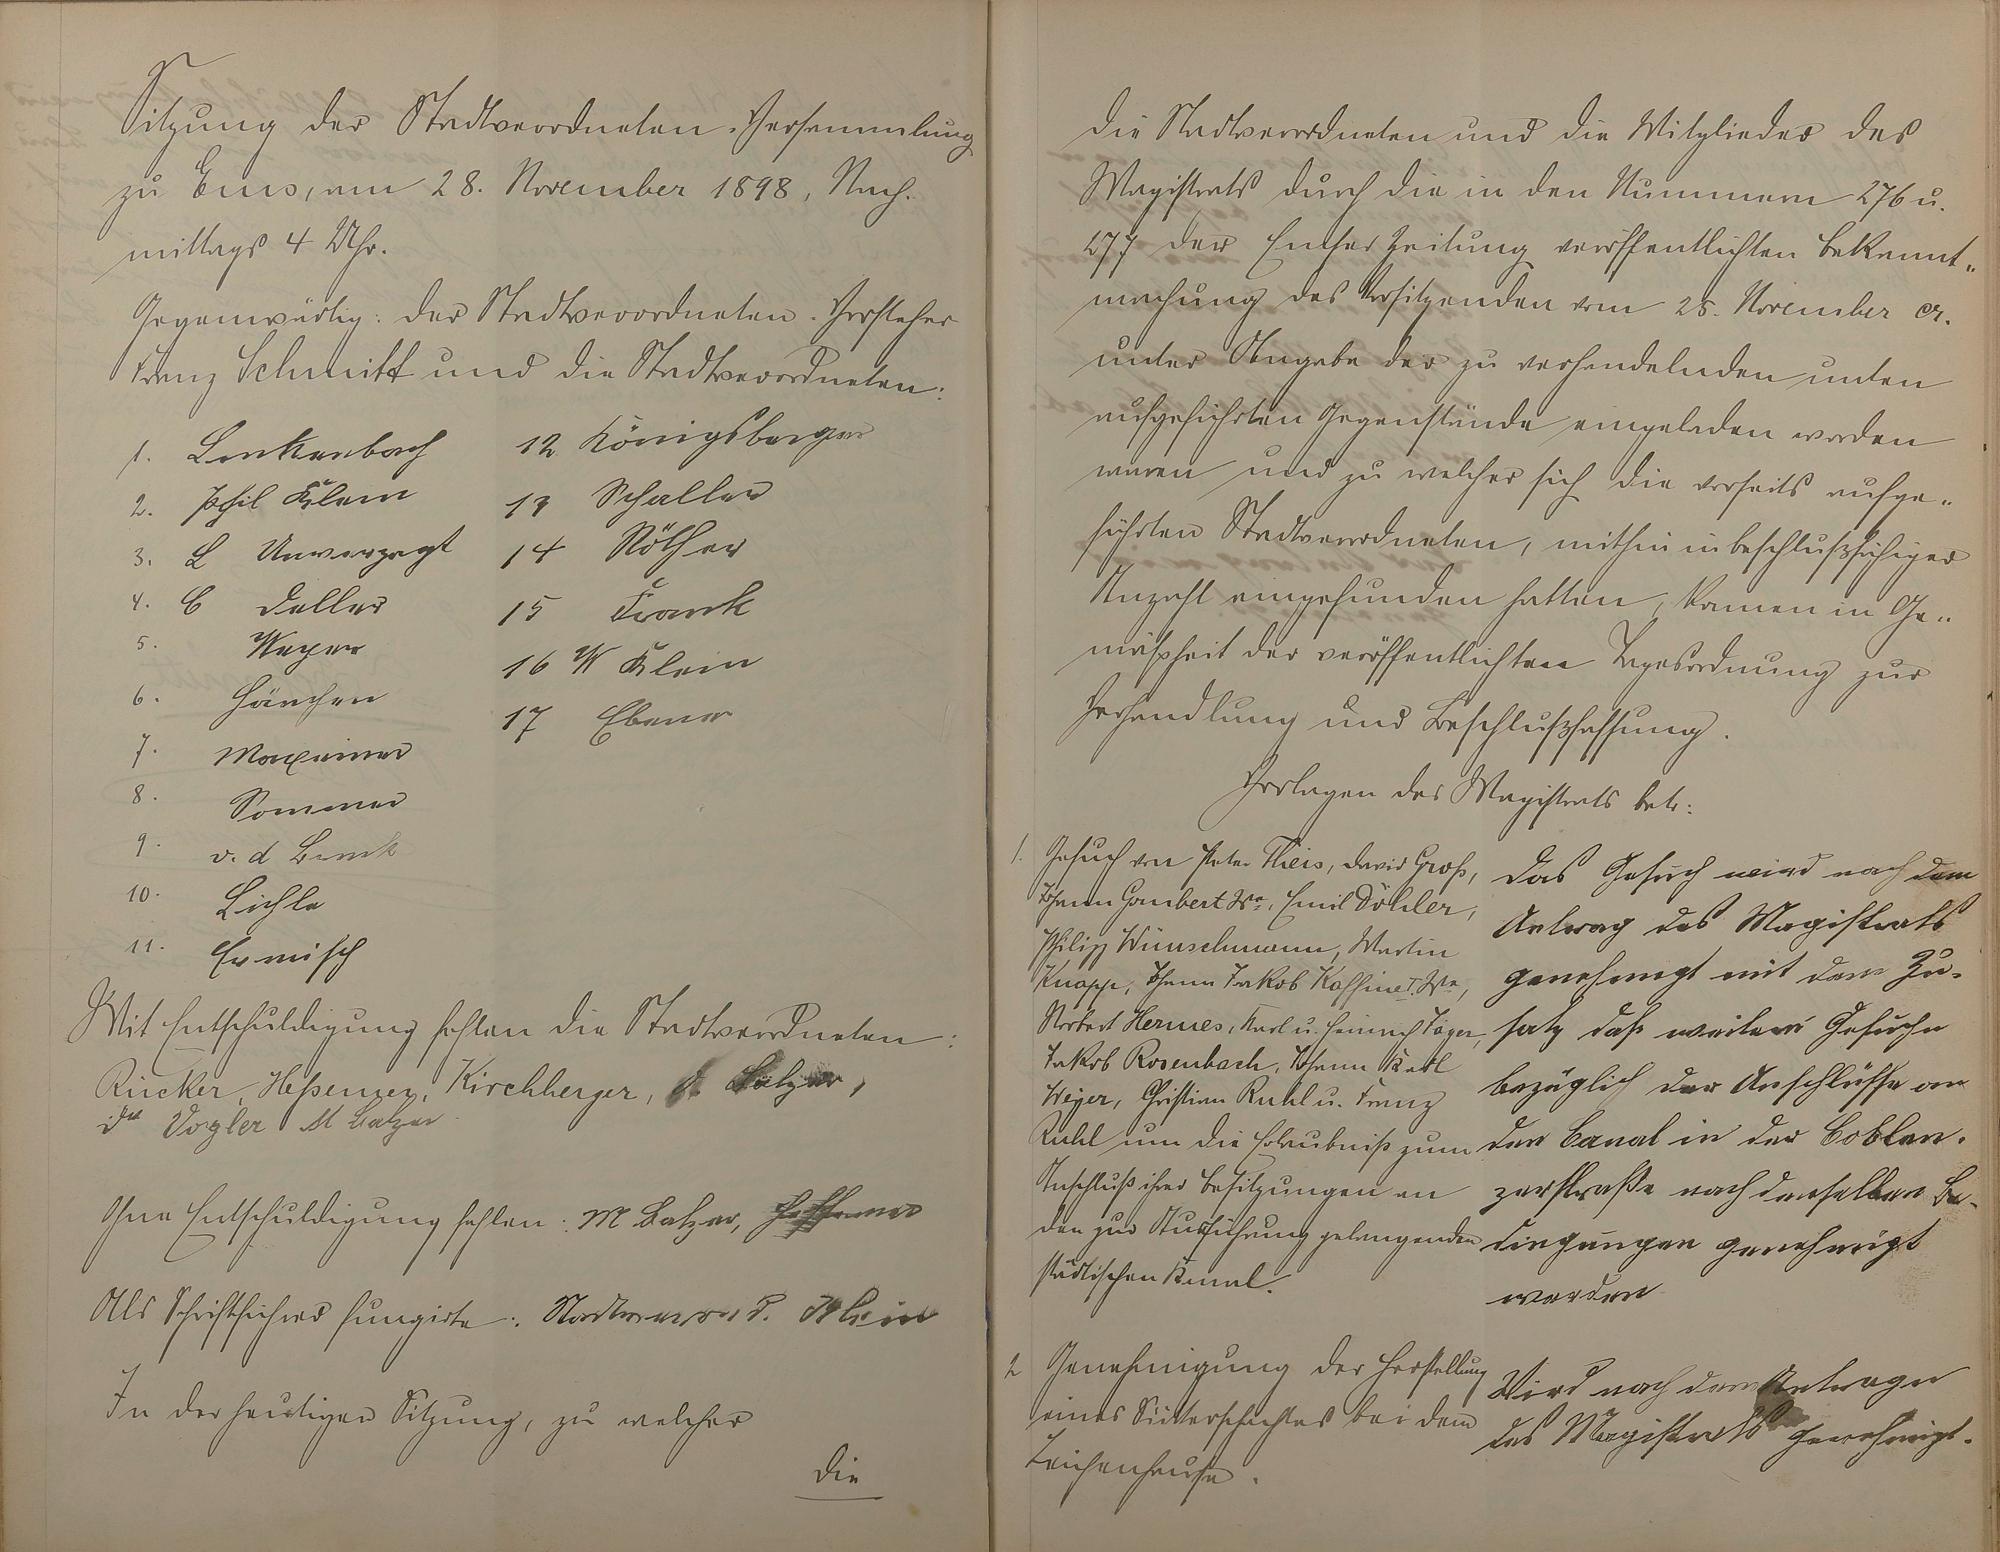 Sitzung der Stadtverordneten-Versammlung
zu Ems, am 28. November 1898, Nach-
mittags 4 Uhr.
Gegenwärtig: der Stadtverordneten-Vorsteher
Franz Schmitt und die Stadtverordneten:
1. Linkenbach
2. Phil Klein
3. L Unverzagt
4. C Deller
5. Weyer
6. Hänchen
7. Maxeiner
8. Sommer
9. v. d Linck
10. Lichle
11. Ermisch
12 Königsberger
13 Schaller
14 Röther
15 Frank
16 W Klein
17 Ebener
Mit Entschuldigung fehlen die Stadtverordneten:
Rücker, Heßemer, Kirchberger, Balzer,
Dr Vogler M Balzer
Ohne Entschuldigung fehlen: M Balzer,
Als Schriftführer fungirte: Stadtverord. Klein
In der heutigen Sitzung, zu welcher
die
die Stadtverordneten und die Mitglieder des
Magistrats durch die in den Nummern 276 u.
277 der Emser Zeitung veröffentlichten Bekannt-
machung des Vorsitzenden vom 25. November cr.
unter Angabe der zu verhandelnden unten
aufgeführten Gegenstände eingeladen worden
waren und zu welcher sich die vorseits aufge-
führten Stadtverordneten, mithin in beschlußfähiger
Anzahl eingefunden hatten, kamen in Ge-
mäßheit der veröffentlichten Tagesordnung zur
Verhandlung und Beschlußfassung.
Vorlagen des Magistrats betr:
1. Gesuch von Peter Theis, David Groß,
Johann Gombert We, Emil Döhler,
Philipp Wünschmann, Martin
Knapp, Johann Jakob Kaffine I. We,
Norbert Hermes, Karl u. Heinrich Jäger,
Jakob Rosenbach, Johann Karl
Weyer, Christian Ruhl u. Franz
Ruhl um die Erlaubniß zum
Anschluß ihrer Besitzungen an
den zur Ausführung gelangenden
städtischen Kanal.
Das Gesuch wird nach dem
Antrag des Magistrats
genehmigt mit dem Zu-
satz daß weitere Gesuche
bezüglich der Anschlüsse an
den Canal in der Coblen-
zerstraße nach denselben Be-
dingungen genehmigt
werden
2 Genehmigung der Herstellung
eines Sinterschachtes bei dem
Leichenhause.
Wird nach dem Antrage
des Magistrats genehmigt.